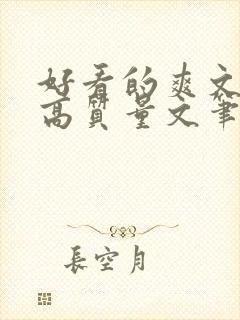 好看的爽文
高質量文筆
長空月